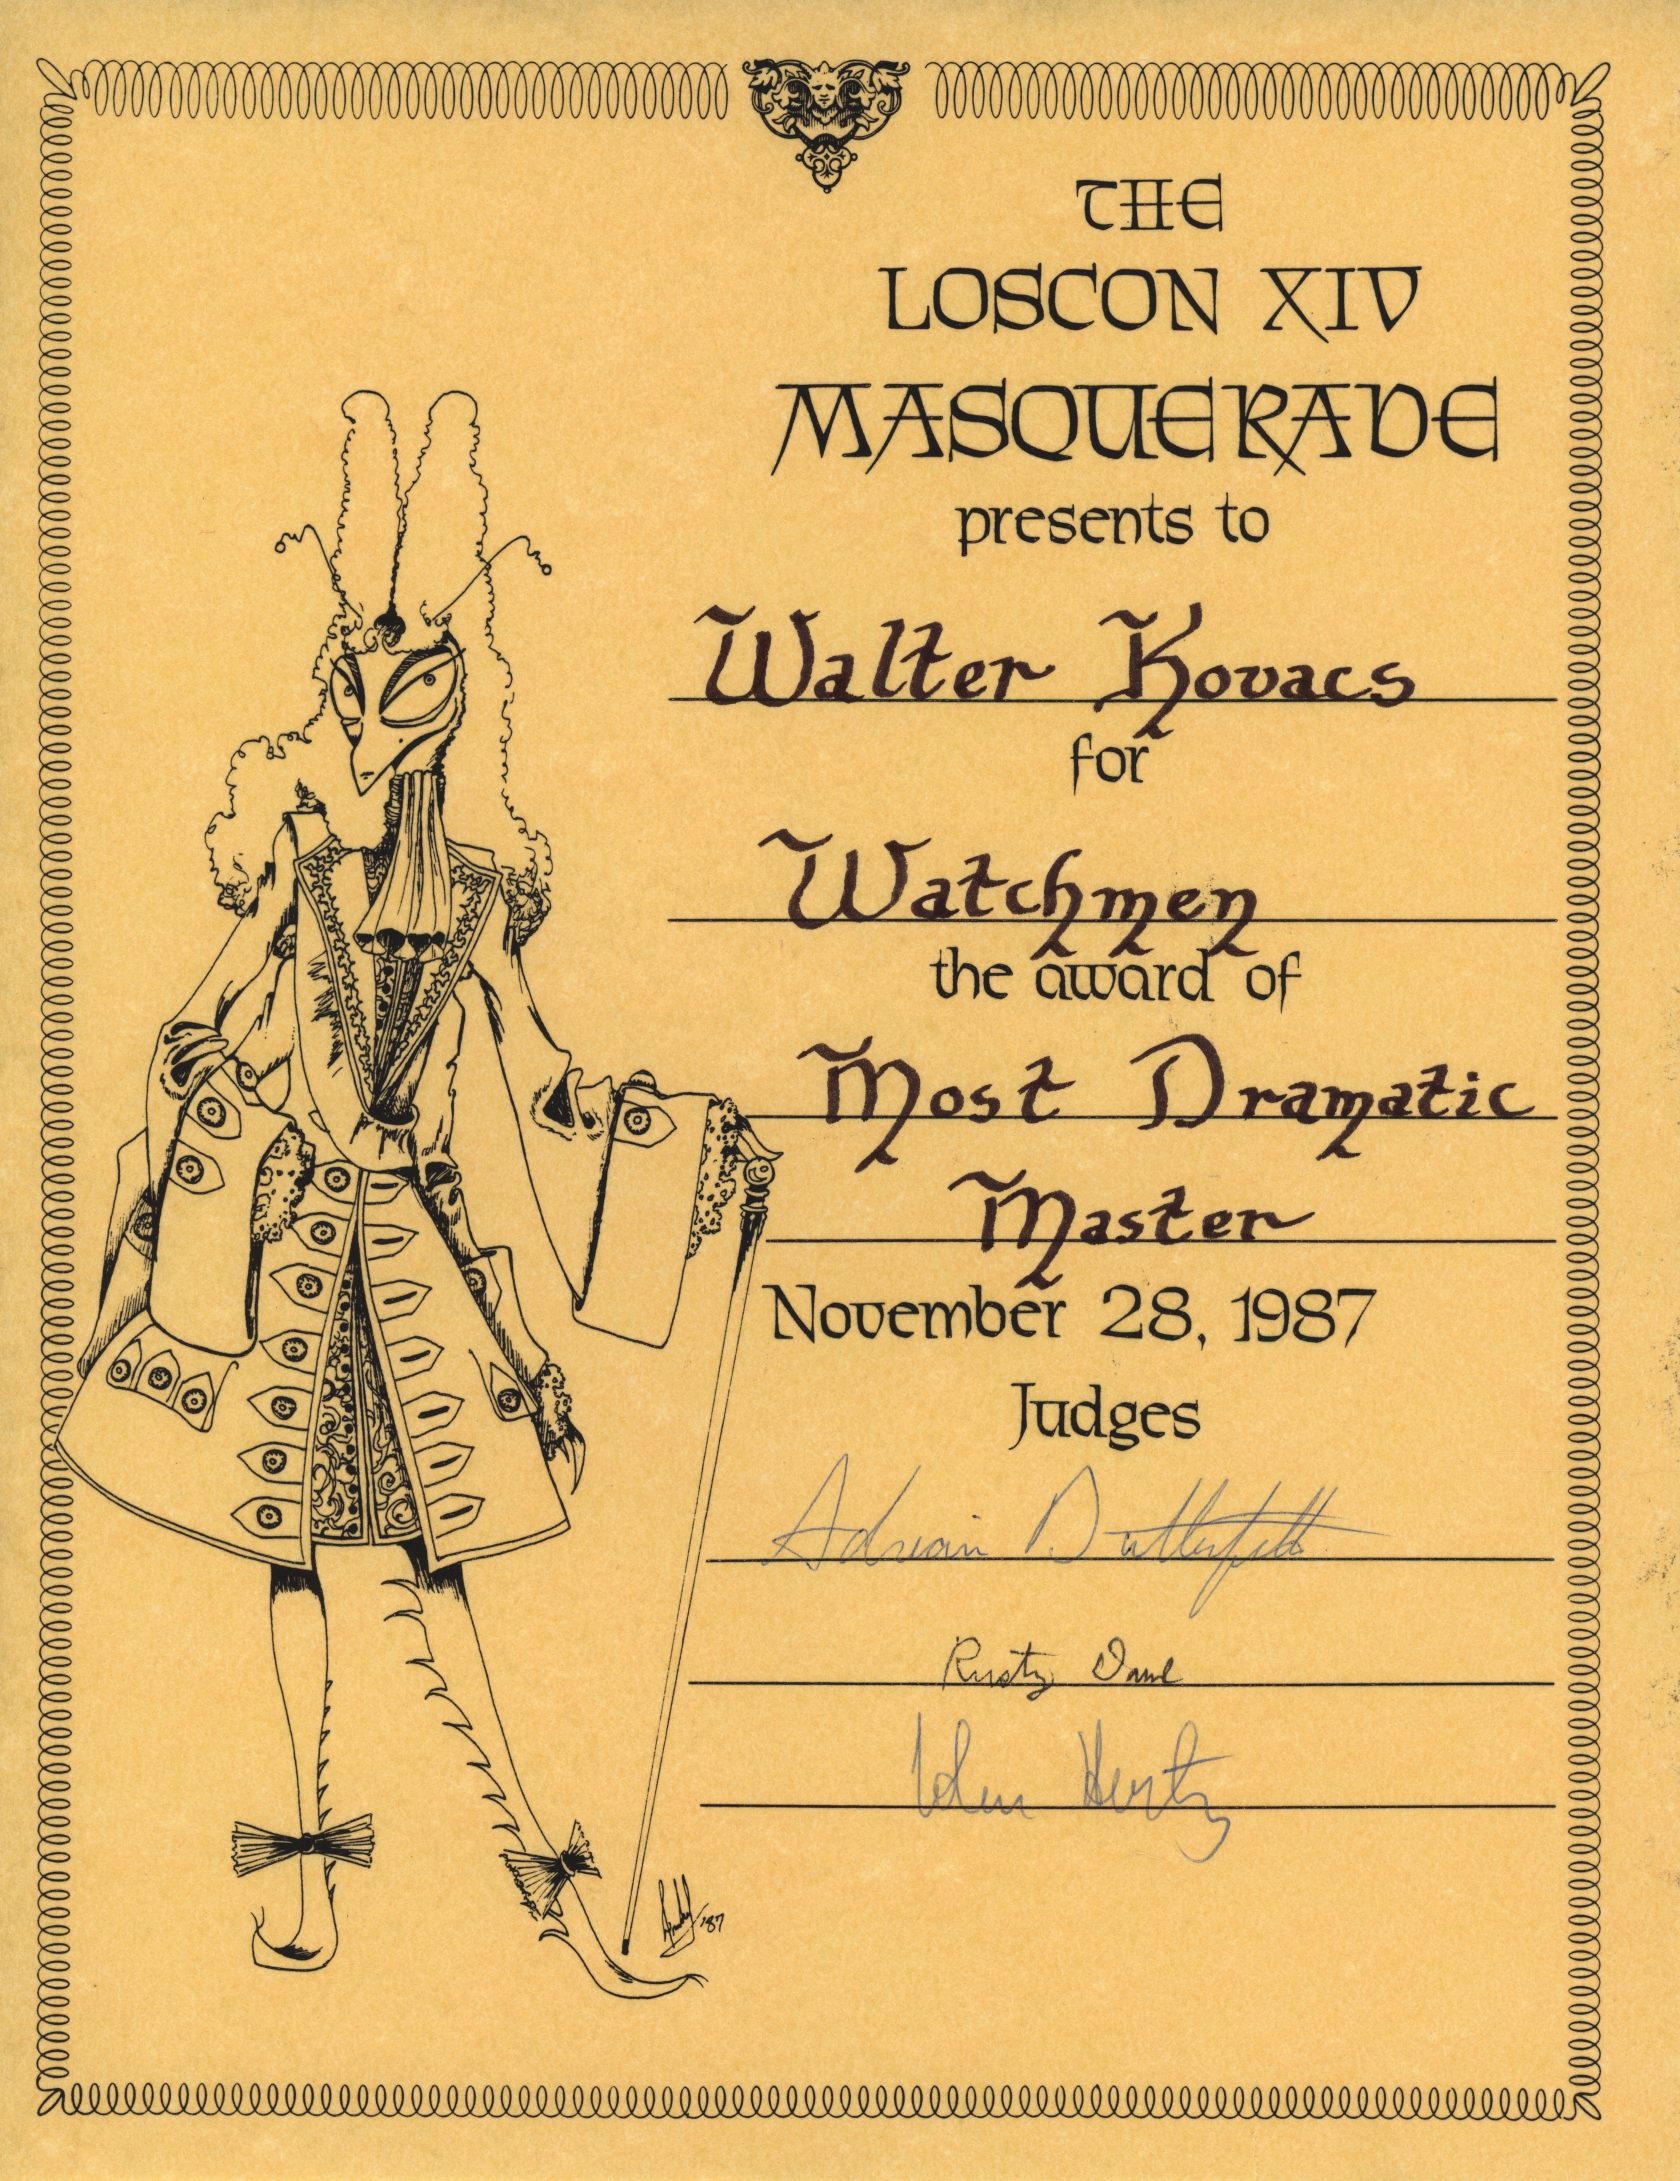 THE
LOSCON XIV
MASQUERADE
presents to
Walter Kovacs
for
Watchmen
the award of
Most Dramatic
Master
November 28, 1987
Judges
Adrian Butterfield
Rusty Dawe
John Hertz
'87